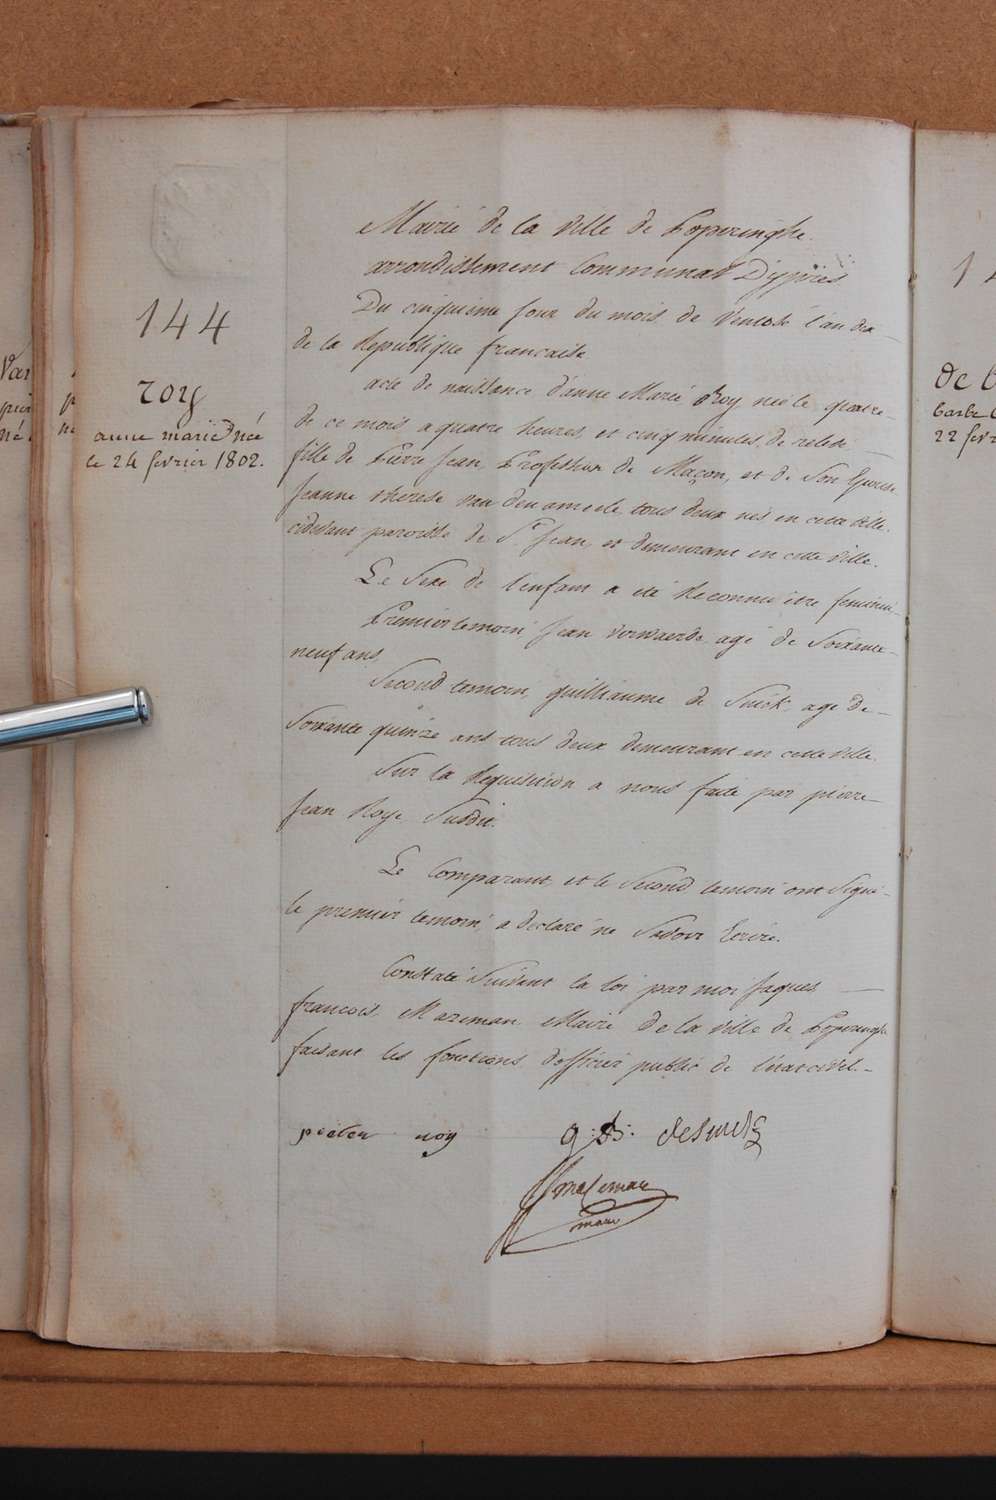 144
roy
anne marie née
le 24 fevrier 1802.
Mairie de la Ville de Poperinghe
arrondissement Communal D'ypres
Du cinquieme Jour du mois de Ventose l'an dix
de la Republique francaise
acte de naissance d'anne Marie Roy née le quatre
de ce mois, a quatre heures, et cinq minutes, de relevée
fille de Pierre Jean, Profession de Maçon, et de Son Epouse
Jeanne therese van den ameele, tous deux nés en cette Ville.
cidevant paroisse de St. Jean, et demeurant en cette Ville.
Le Sexe de l'enfant a été Reconnu être feminin
Premier temoin Jean verwaerde agé de Soixante
neuf ans,
Second temoin, guilliaume de Snick agé de
Soixante quinze ans tous deux demeurant en cette Ville.
Sur la Requisition a nous faite par pierre
Jean Roye Susdit.
Le Comparant et le Second temoin ont Signé
le premier temoin, a declaré ne Savoir Ecrire.
Constaté Suivant la loi par moi Jaques
francois Mazeman Maire de la Ville de Poperinghe
faisant les fonctions d'officier public de l'etat civil.
pieter roy
g: D:
mazeman
maire
Van
né
de
barbe
22 fevr